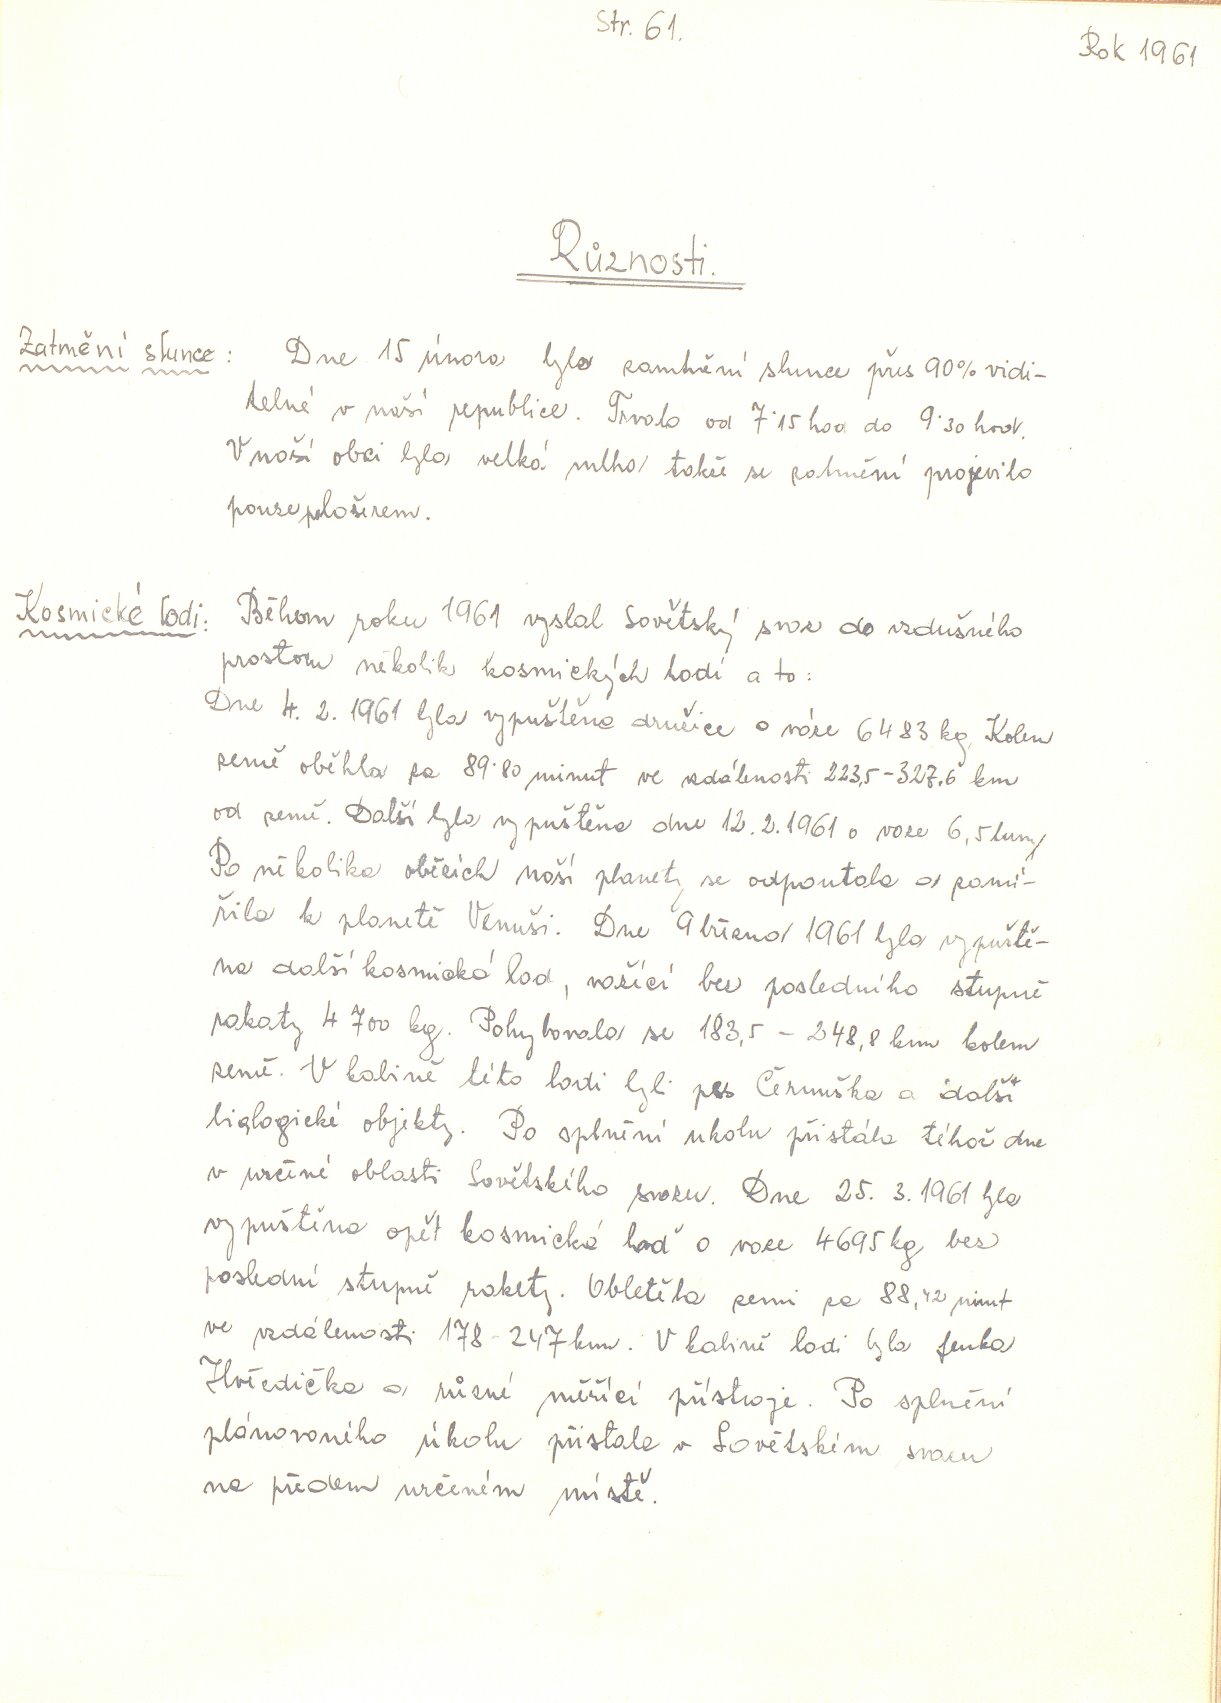 Str. 61.
Rok 1961
Různosti.
Zatmění slunce: Dne 15 února bylo zamtnění slunce přes 90% vidi-
telné v naší republice. Trvalo od 7·15 hod do 9·30 hod.
V naší obci byla velká mlha takže se zatmění projevilo
pouze pološerem.
Kosmické lodi: Během roku 1961 vyslal Sovětský svaz do vzdušného
prostoru několik kosmických lodí a to:
Dne 4. 2. 1961 byla vypuštěna družice o váze 6483 kg. Kolem
země oběhla za 89·80 minut ve vzdálenosti 223,5-327,6 km
od země. Další byla vypuštěna dne 12.2.1961 o vaze 6,5 tuny
Po několika oběžích naší planety se odpoutala a zamí-
řila k planetě Venuši. Dne 9 března 1961 byla vypuště-
na další kosmická lod, vážící bez posledního stupně
rakaty 4 700 kg. Pohybovala se 183,5 - 248,8 km kolem
země. V kabině této lodi byli pes Černuška a další
biologické objekty. Po splnění ukolu přistála téhož dne
v určené oblasti Sovětského svazu. Dne 25. 3. 1961 byla
vypuštěna opět kosmická loď o vaze 4695 kg bez
poslední stupně rakety. Obletěla zemi za 88,42 minut
ve vzdálenosti 178-247 km. V kabině lodi byla fenka
Hvězdička a různé měřící přístroje. Po splnění
plánovaného úkolu přistala v Sovětském svazu
na předem určeném místě.